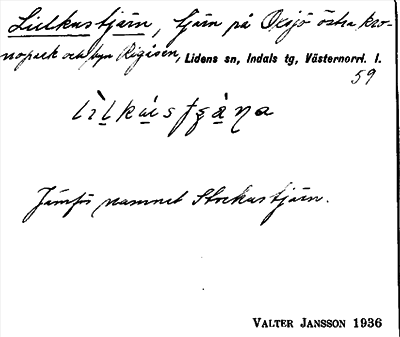 Lillkustjärn, tjärn på Oxsjö östra kro-
nopark och byn Rigåsen, Lidens sn, Indals tg, Västernorrl. l.
59
Jämför namnet Storkustjärn.
VALTER JANSSON 1936